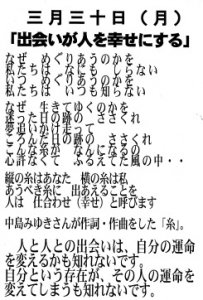 三月三十日（月）
「出会いが人を幸せにする」
なぜ　めぐりあうのかを
私たちは　なにも　しらない
いつ　めぐりあうのかを
私たちは　いつも知らない
なぜ　生きてゆくのかを
迷った日の跡の　ささくれ
夢追いかけ走って
ころんだ日の跡の　ささくれ
こんな糸が　なんになるの
心許なくて　ふるえてた風の中・・
縦の糸はあなた　横の糸は私
あうべき糸に　出あえることを
人は　仕合わせ（幸せ）と呼びます
中島みゆきさんが作詞・作曲をした「糸」。
人と人との出会いは、自分の運命
を変えるかも知れないです。
自分という存在が、その人の運命
を変えてしまうも知れないです。